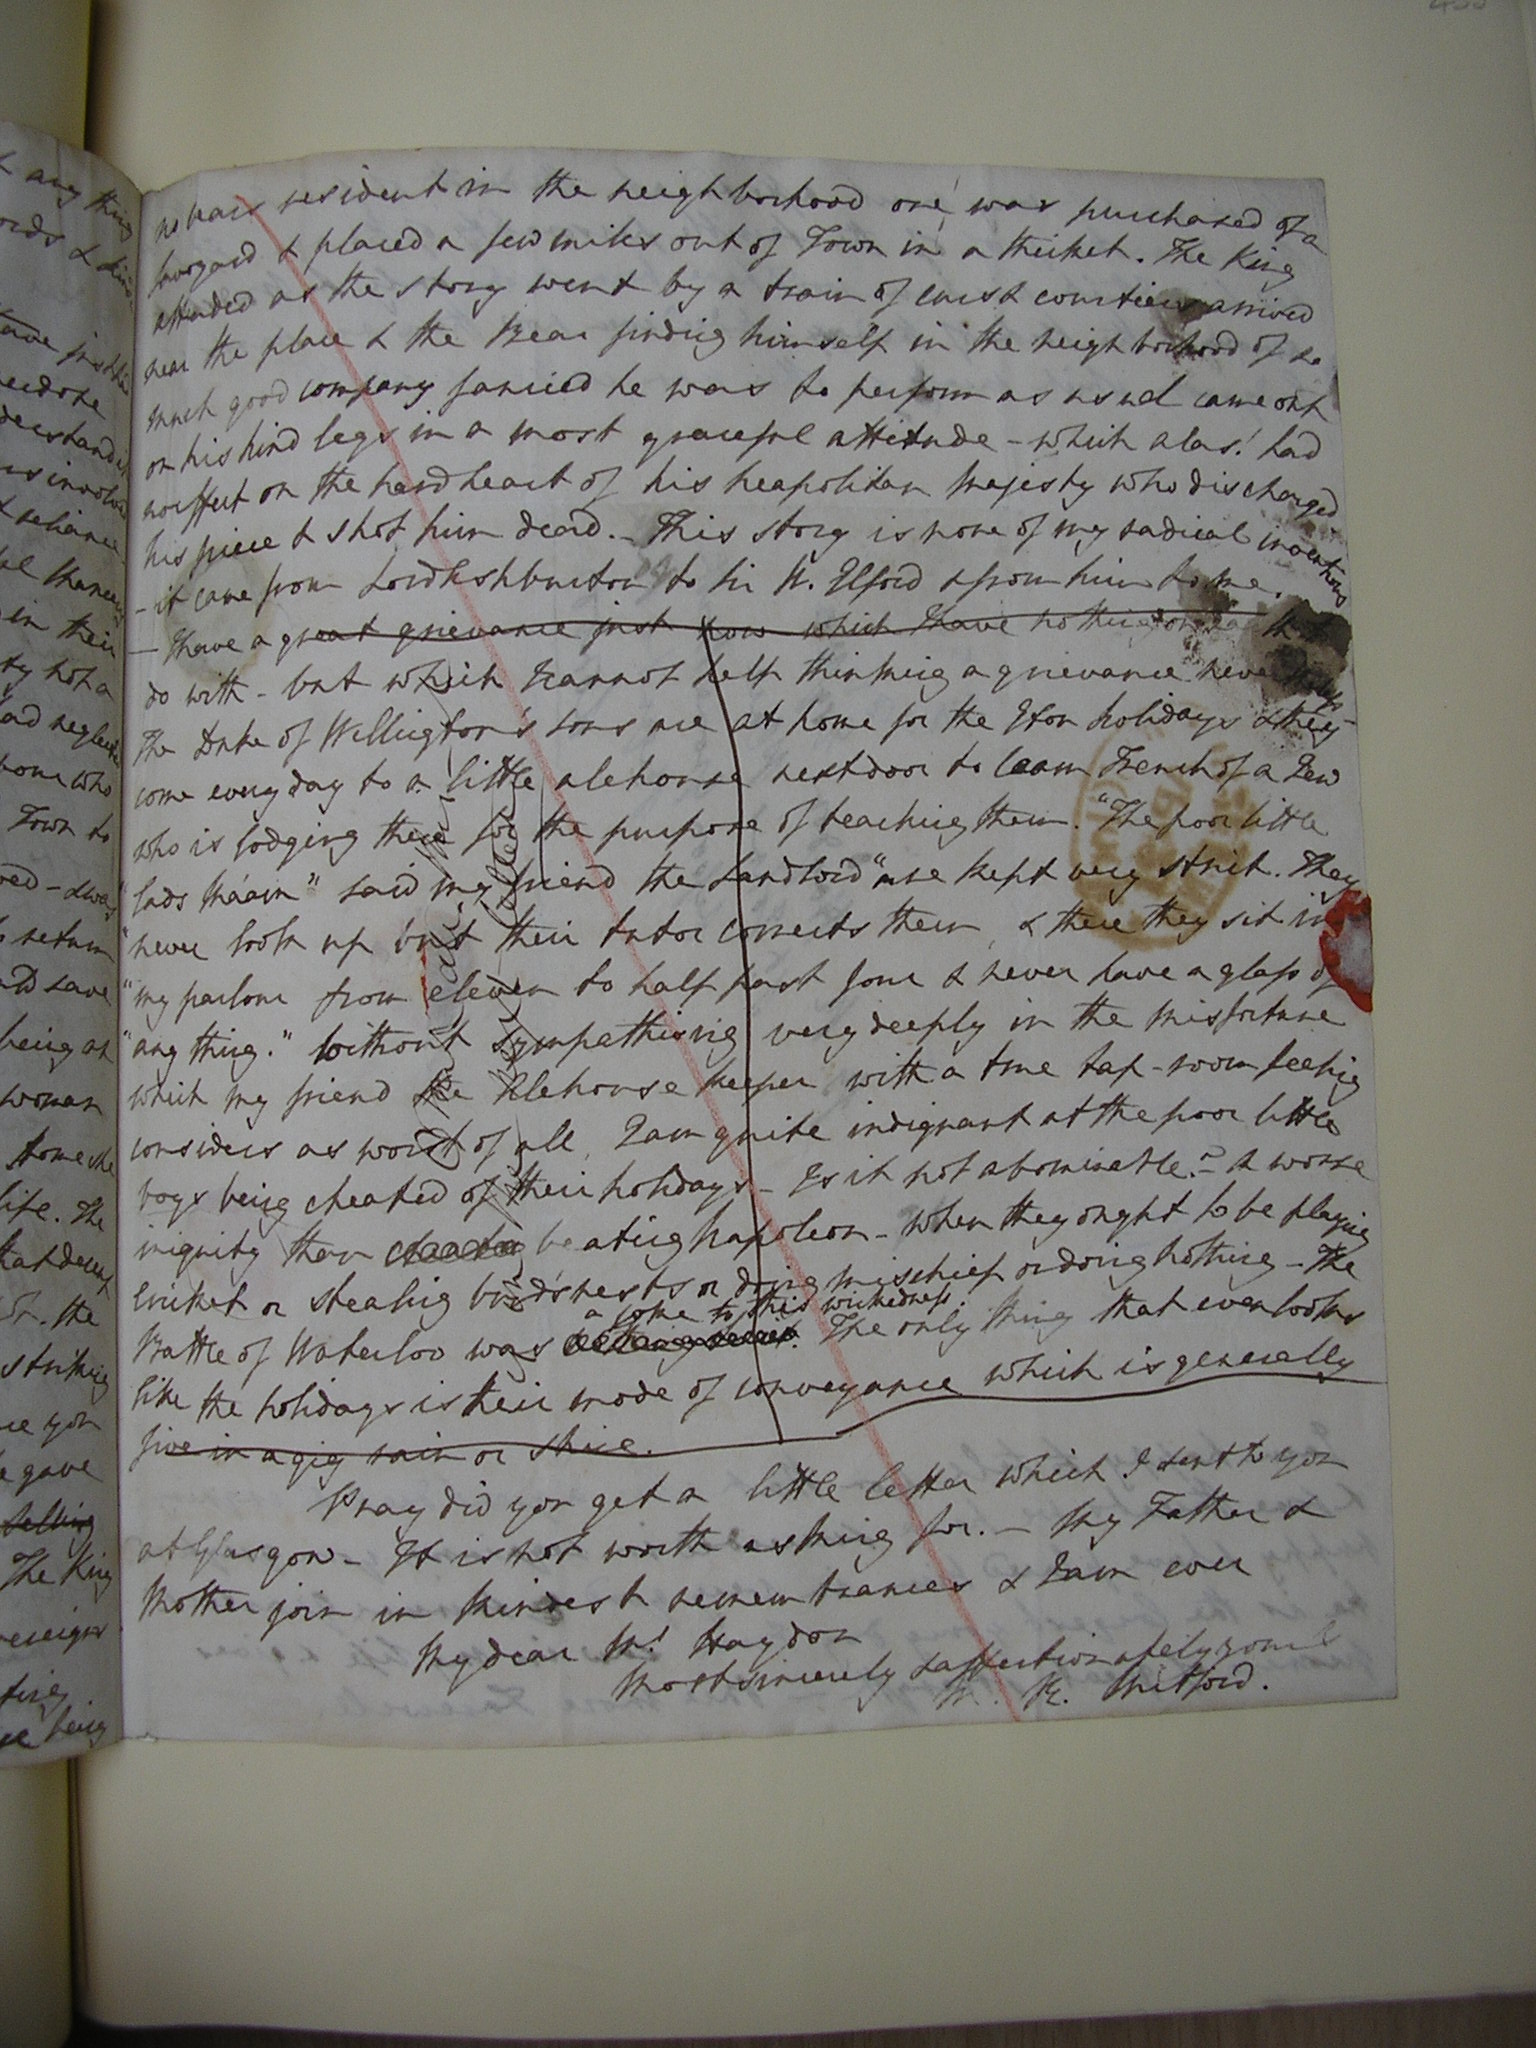 no bears resident in the neighborhood one was purchased of a
Savoyard & placed a few miles out of Town in a thicket. The King
attended as the story went by a train of courtiers arrived
near the place & the Bear finding himself in the neighborhood of so
much good company fancied he was to perform as usual came out
on his hind legs in a most graceful attitude - which alas! had
no effect on the hard heart of his Neapolitan Majesty who discharged
his piece & shot him dead. - This story is none of my radical inventions
- it came from Lord Ashburton to Sir W. Elford & from him to me.
- I have a great grievance just now which I have nothing on
do with - but which I cannot help thinking a grievance nevertheless
The Duke of Wellington's sons are at home for the Eton holidays & they
come every day to a little alehouse next door to learn French of a Jew
who is lodging there for the purpose of teaching them. "The poor little
"lads Ma'am" said my friend the Landlord "are kept very strict. They
"never look up but their tutor corrects them, & there they sit in
"my parlour from eleven to half past four & never have a glass of
"any thing." Without sympathising very deeply in the misfortune
which my friend the Alehouse keeper with a true tap-room feeling
considers as worst of all, I am quite indignant at the poor little
boys being cheated of their holidays - Is it not abominable? - A worse
iniquity than beating Napoleon - when they ought to be playing
cricket or stealing birds nests or doing mischief or doing nothing - The
Battle of Waterloo was a joke to this wickedness. The only thing that even looks
like the holidays is their mode of conveyance which is generally
five in a gig rain or shine.
Pray did you get a little letter which I sent to you
at Glasgow - It is not worth asking for. - My Father &
Mother join in kindest remembrances & I am ever
My dear Mr. Haydon
Most sincerely & affectionately yours
M. R. Mitford.